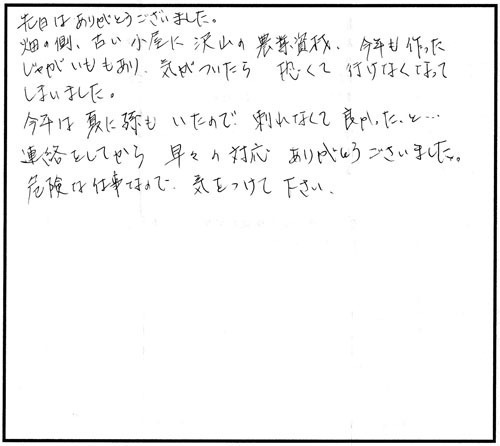 先日はありがとうございました。
畑の側、古い小屋に沢山の農業資材、今年も作った
じゃがいももあり、気がついたら 恐くて 行けなくなって
しまいました。
今年は 夏に孫も いたので 刺れなくて 良かった、と…
連絡をしてから 早々の対応 ありがとうございました。
危険な仕事なので、気をつけて 下さい、